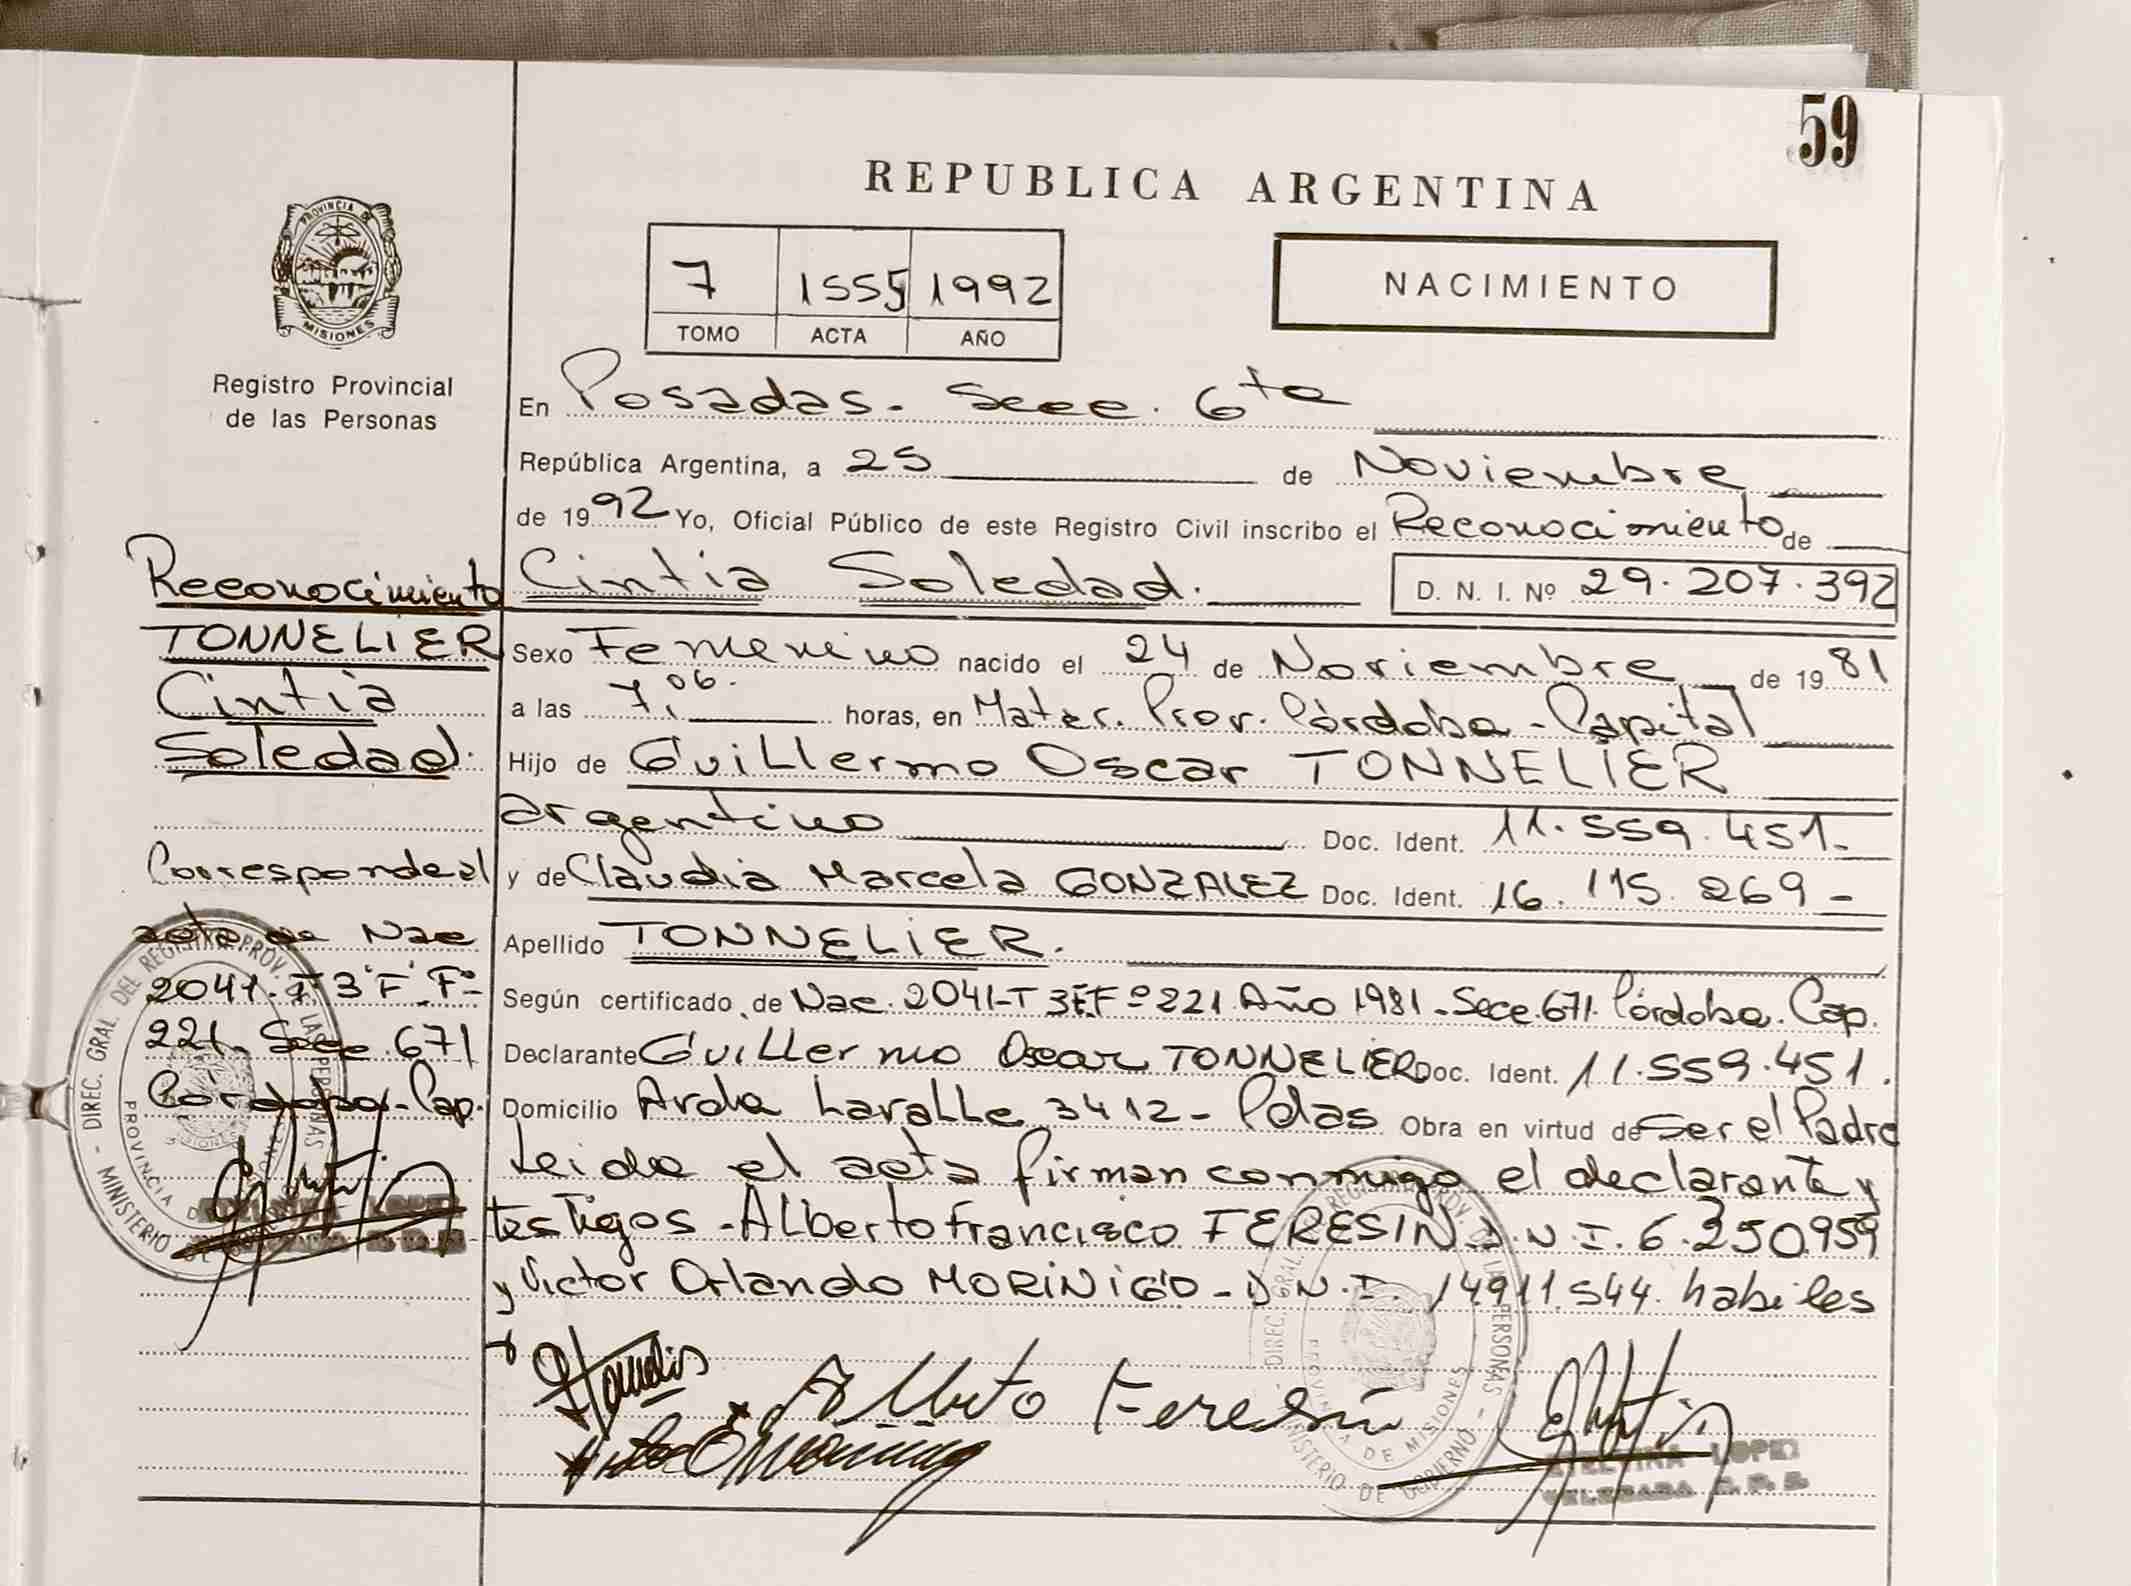 59
REPUBLICA ARGENTINA
PROVINCIA DE
MISIONES
Registro Provincial
de las Personas
7 1555 1992
TOMO ACTA AÑO
NACIMIENTO
En Posadas. Secc. 6ta
República Argentina, a 25 de Noviembre
de 1992 Yo, Oficial Público de este Registro Civil inscribo el Reconocimiento de
Cintia Soledad. D. N. I. Nº 29.207.392
Sexo Femenino nacido el 24 de Noviembre de 1981
a las 7,06. horas, en Mater. Prov. Córdoba - Capital
Hijo de Guillermo Oscar TONNELIER
argentino Doc. Ident. 11.559.451.
y de Claudia Marcela GONZALEZ Doc. Ident. 16.115.269-
Apellido TONNELIER.
Según certificado de Nac. 2041-T 3ºF.Fº 221. Año 1981. Secc. 671. Córdoba. Cap.
Declarante Guillermo Oscar TONNELIER Doc. Ident. 11.559.451.
Domicilio Avda Lavalle 3412- Pdas Obra en virtud de Ser el Padre
Leida el acta firman conmigo el declarante y
testigos - Alberto Francisco FERESIN D.N.I. 6.350.959
y Victor Orlando MORINIGO - D.N.I. 14911.544. habiles
Alberto Feresin
ETELVINA LOPEZ
DELEGADA
Reconocimiento
TONNELIER
Cintia
Soledad.
Corresponde al
acta de Nac
2041. T 3ºF. Fº
221. Secc 671
Córdoba - Cap.
MINISTERIO DE GOBIERNO - DIREC. GRAL. DEL REGISTRO PROV. DE LAS PERSONAS
PROVINCIA DE MISIONES
MINISTERIO DE GOBIERNO - DIREC. GRAL. DEL REGISTRO PROV. DE LAS PERSONAS
PROVINCIA DE MISIONES